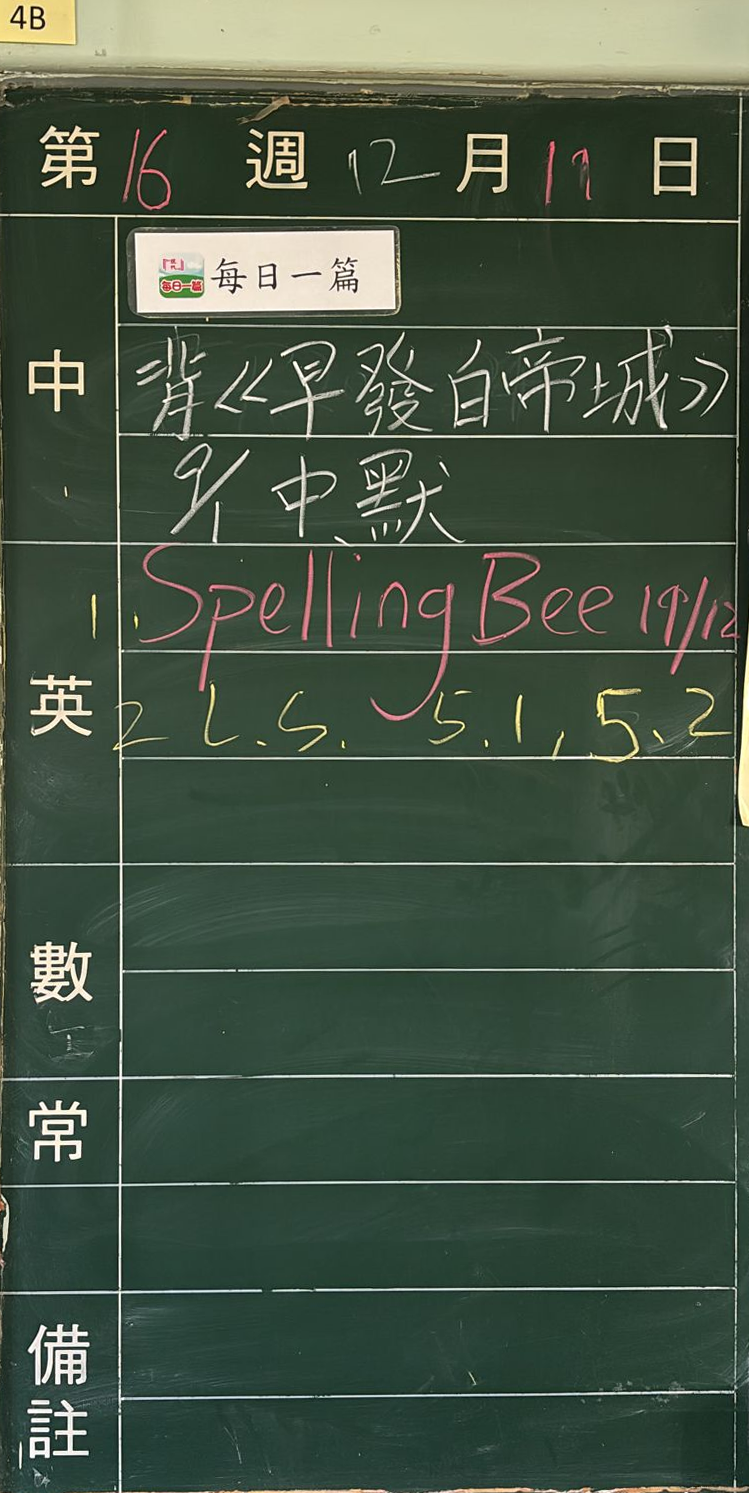 4B
第 16 週 12 月 11 日
中
每日一篇 每日一篇
背《早發白帝城》
9/1 中默
英
1. Spelling Bee 19/12
2 L.S. 5.1, 5.2
數
常
備註